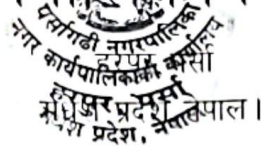 पर्सागढी नगरपालिका
नगर कार्यपालिकाको कार्यालय
हरपुर, पर्सा
हरपुर पर्सा
मधेश प्रदेश, नेपाल।
प्रदेश, नेपाल